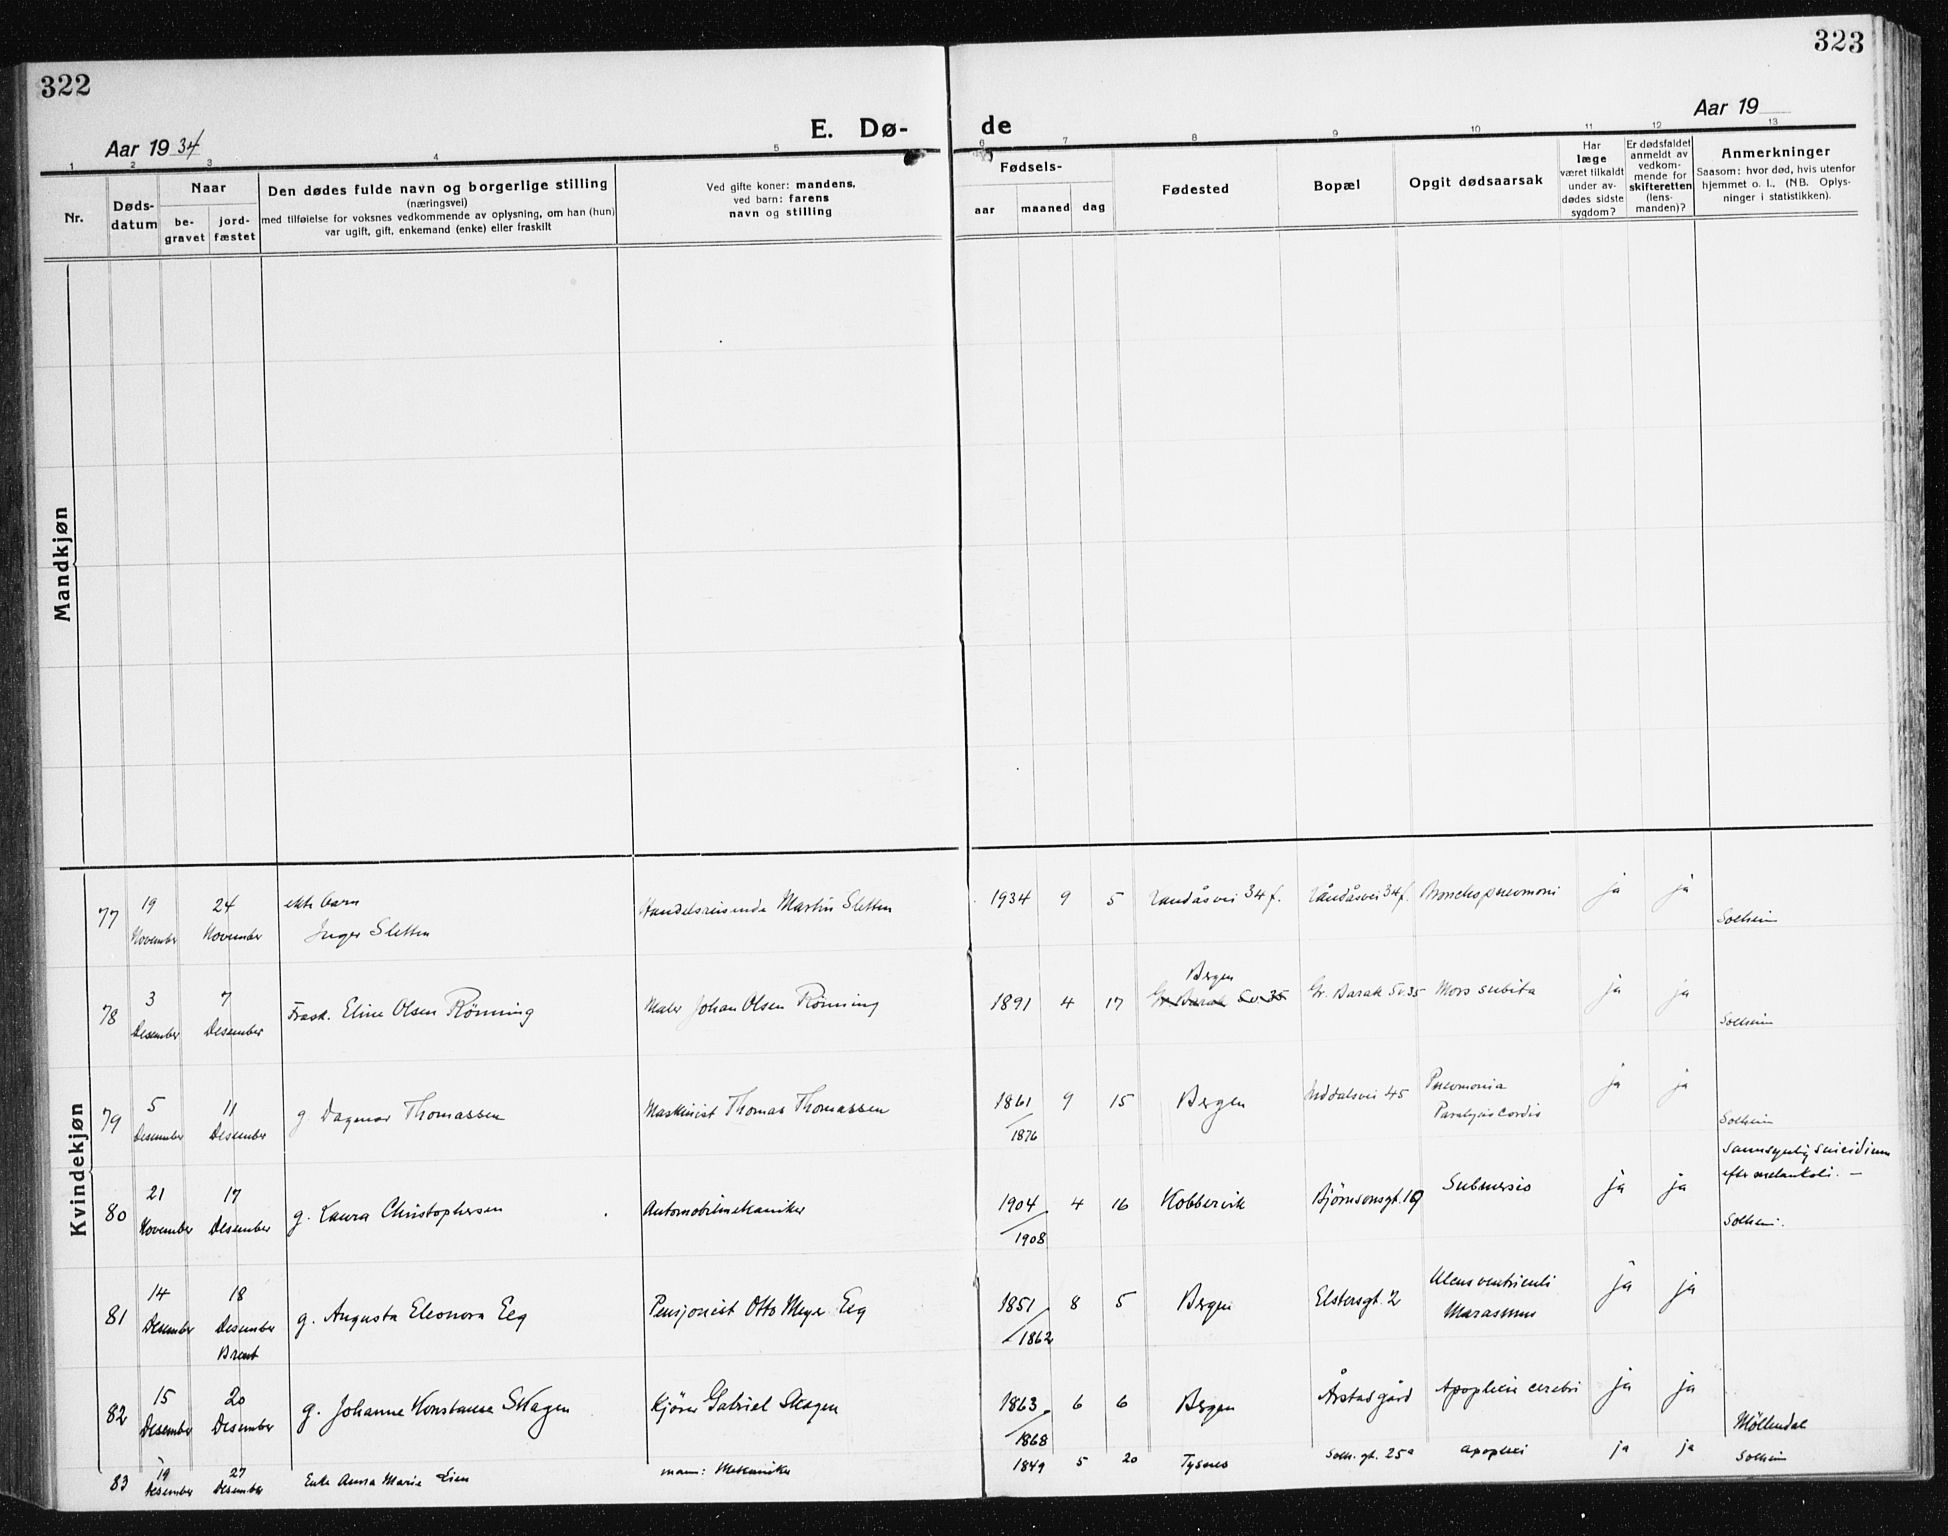 322
323
Aar 1934
E. Dø-
de
Aar 19
1 2 3 4 5 6 7 8 9 10 11 12 13
Nr.
Døds-
datum
Naar
be-
gravet
jord-
fæstet
Den dødes fulde navn og borgerlige stilling
(næringsvei)
med tilføielse for voksnes vedkommende av oplysning, om han (hun)
var ugift, gift, enkemand (enke) eller fraskilt
Ved gifte koner: mandens,
ved barn: farens
navn og stilling
Fødsels-
aar maaned dag
Fødested
Bopæl
Opgit dødsaarsak
Har
læge
været tilkaldt
under av-
dødes sidste
sygdom?
Er dødsfaldet
anmeldt av
vedkom-
mende for
skifteretten
(lens-
manden)?
Anmerkninger
Saasom: hvor død, hvis utenfor
hjemmet o. l., (NB. Oplys-
ninger i statistikken).
Mandkjøn
Kvindekjøn
77 19 November 24 November ekte barn
Inger Sletten
Handelsreisende Martin Sletten 1934 9 5 Landåsvei 34 f. Landåsvei 34 f. Bronchopneumoni ja ja
Solheim
78 3 Desember 7 Desember Frask. Eline Olsen Rönning Maler Johan Olsen Rönning 1891 4 17 Bergen
Gr. Barak Sv. 35 Gr. Barak Sv 35 Mors subita ja ja
Solheim
79 5 Desember 11 Desember g. Dagmar Thomassen Maskinist Thomas Thomassen 1861 9 15 Bergen 45 Pneumonia ja ja
1876 Paralysis cordis
Solheim
80 21 November 17 Desember g. Laura Christophersen Automobilmekaniker 1904 4 16 Kobbervik Bjørnsonsgt. 19 Submersio ja ja
Sannsynlig suicidium
efter melankoli. —
1908
Solheim.
81 14 Desember 18 Desember
Brent
g. Augusta Eleonora Eeg Pensjonist Otto Meyer Eeg 1851 8 5 Bergen Elstersgt. 2 Ulcus ventriculi ja ja
Marasmus
1862
82 15 Desember 20 Desember g. Johanne Konstanse Skagen Kjører Gabriel Skagen 1863 6 6 Bergen Årstadgård Apoplexie cerebri ja ja
1868
Møllendal
83 19 Desember 27 Desember Enke Anna Marie Lien mann: Mekaniker 1849 5 20 Tysnes Solh. gt. 25a Apoplexi ja ja Solheim